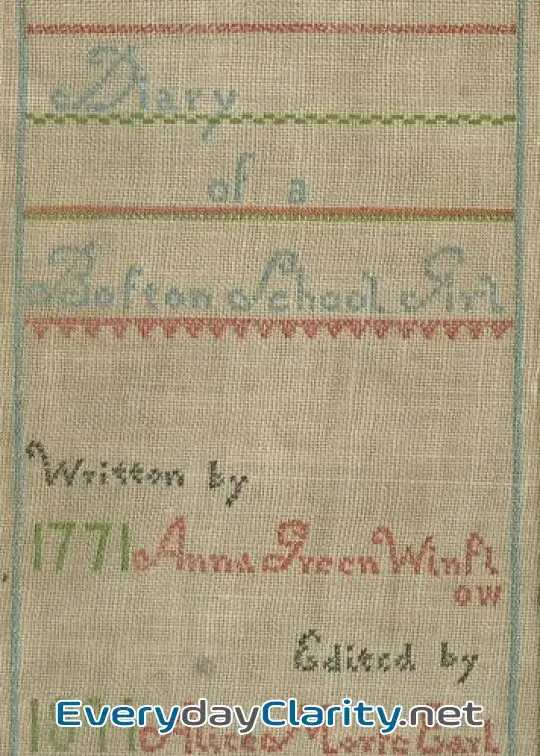 Diary
of a
Boſton School Girl
Written by
1771 Anna Green Winſl
ow
Edited by
EverydayClarity.net